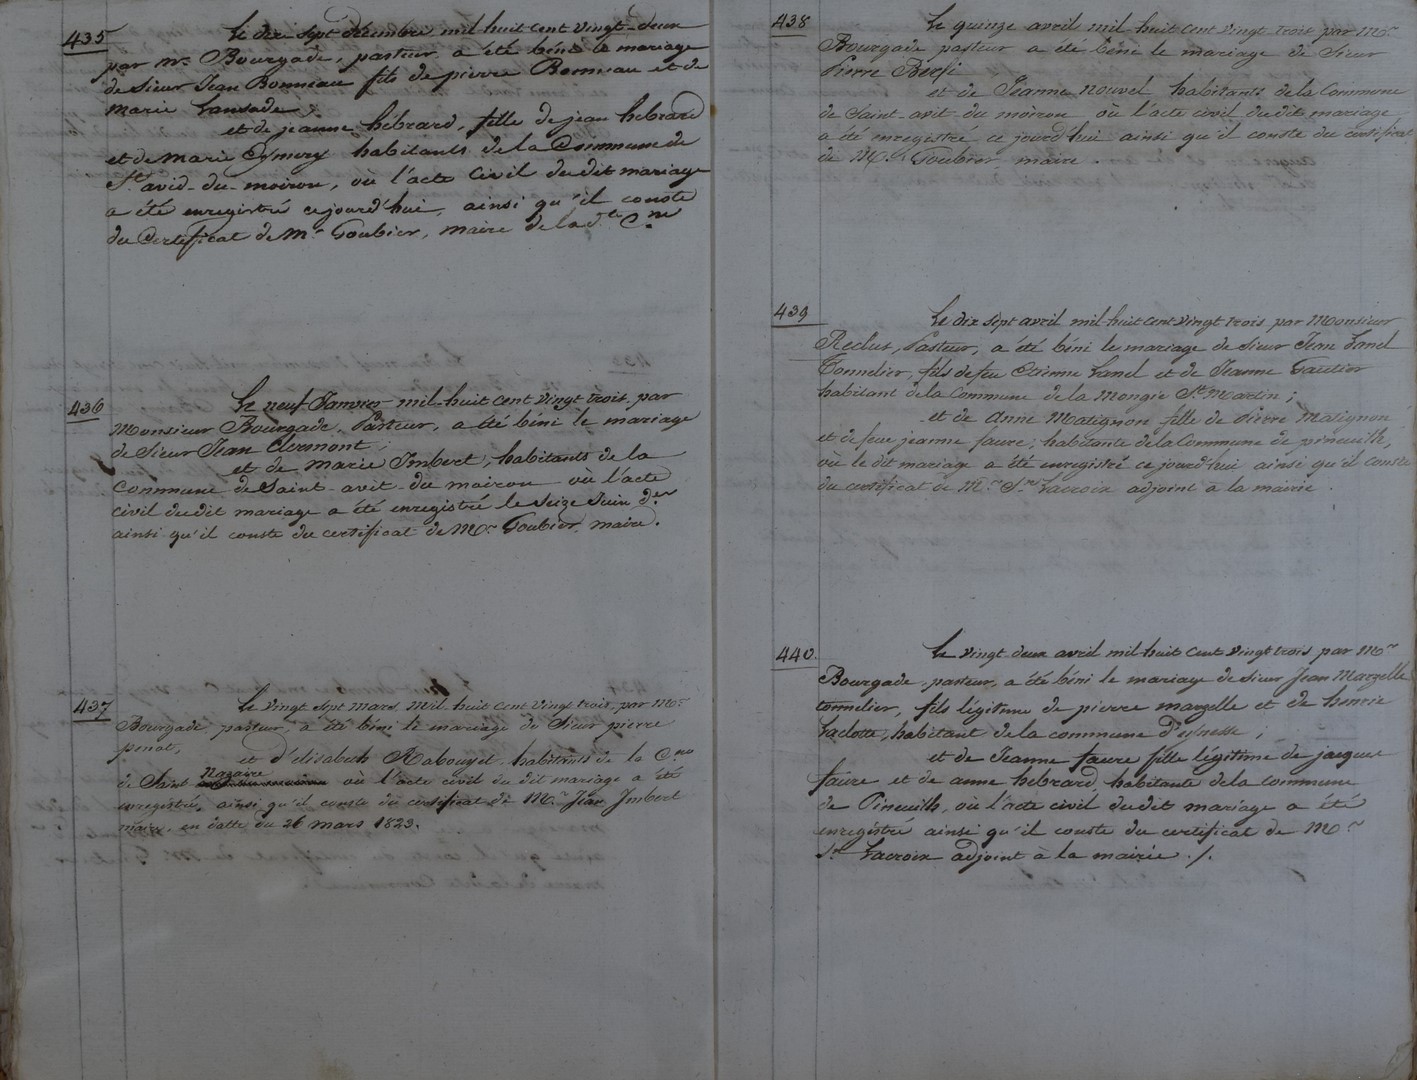 435
Le dix sept décembre mil huit cent vingt-deux
par mr. Bourgade, pasteur a été béni le mariage
de Sieur Jean Bonneau fils de pierre Bonneau et de
marie Lansade;
et de jeanne hébrard, fille de jean hebrard
et de marie Eymery habitants de la Commune de
St. avid-du-moiron, où l'acte Civil du dit mariage
a été enregistré cejourd'hui, ainsi qu'il conste
du Certificat de Mr. Goubier, maire de la dte. Cne
436
Le neuf Janvier mil-huit cent vingt trois par
Monsieur Bourgade, Pasteur, a été béni le mariage
de Sieur Jean Clermont;
et de Marie Imbert, habitants de la
Commune de Saint-avit du moiron où l'acte
civil du dit mariage a été enregistré le Seize Juin der.
ainsi qu'il conste du certificat de Mr. Goubier maire.
437
Le vingt sept mars mil huit cent vingt trois, par Mr.
Bourgade pasteur, a été béni le mariage de Sieur pierre
pinat,
et d'élisabeth Rabouyet habitants de la Cne
de Saint Nazaire où l'acte civil du dit mariage a été
enregistré, ainsi qu'il conste du certificat de Mr. Jean Imbert
maire, en datte du 26 mars 1823.
438
Le quinze avril mil-huit cent vingt trois par Mr.
Bourgade pasteur a été béni le mariage de Sieur
Pierre
et de Jeanne Nouvel habitants de la Commune
de Saint-avit-du moiron où l'acte civil du dit mariage
a été enregistré ce jourd'hui ainsi qu'il conste du certificat
de Mr. Goubier maire.
439
Le dix sept avril mil-huit cent vingt trois par Monsieur
Reclus, Pasteur, a été béni le mariage de Sieur Jean Lanel
Tonnelier, fils de feu Etienne Lanel et de Jeanne Gautier
habitant de la Commune de la Mongie St. Martin;
et de Anne Matignon fille de Pierre Matignon
et de feue jeanne faure, habitante de la Commune de pineuilh,
où le dit mariage a été enregistré ce jourd'hui ainsi qu'il conste
du certificat de Mr. Sr. Lacroix adjoint à la mairie.
440.
Le vingt-deux avril mil-huit Cent vingt trois par Mr.
Bourgade, pasteur, a été béni le mariage de Sieur Jean Marzelle
tonnelier, fils légitime de pierre marzelle et de henrie
Laclotte, habitant de la commune d'eynesse;
et de Jeanne faure fille légitime de jacques
faure et de anne hebrard, habitante de la Commune
de Pineuilh, où l'acte civil du dit mariage a été
enregistré ainsi qu'il conste du certificat de Mr.
Sr. Lacroix adjoint à la mairie ./.